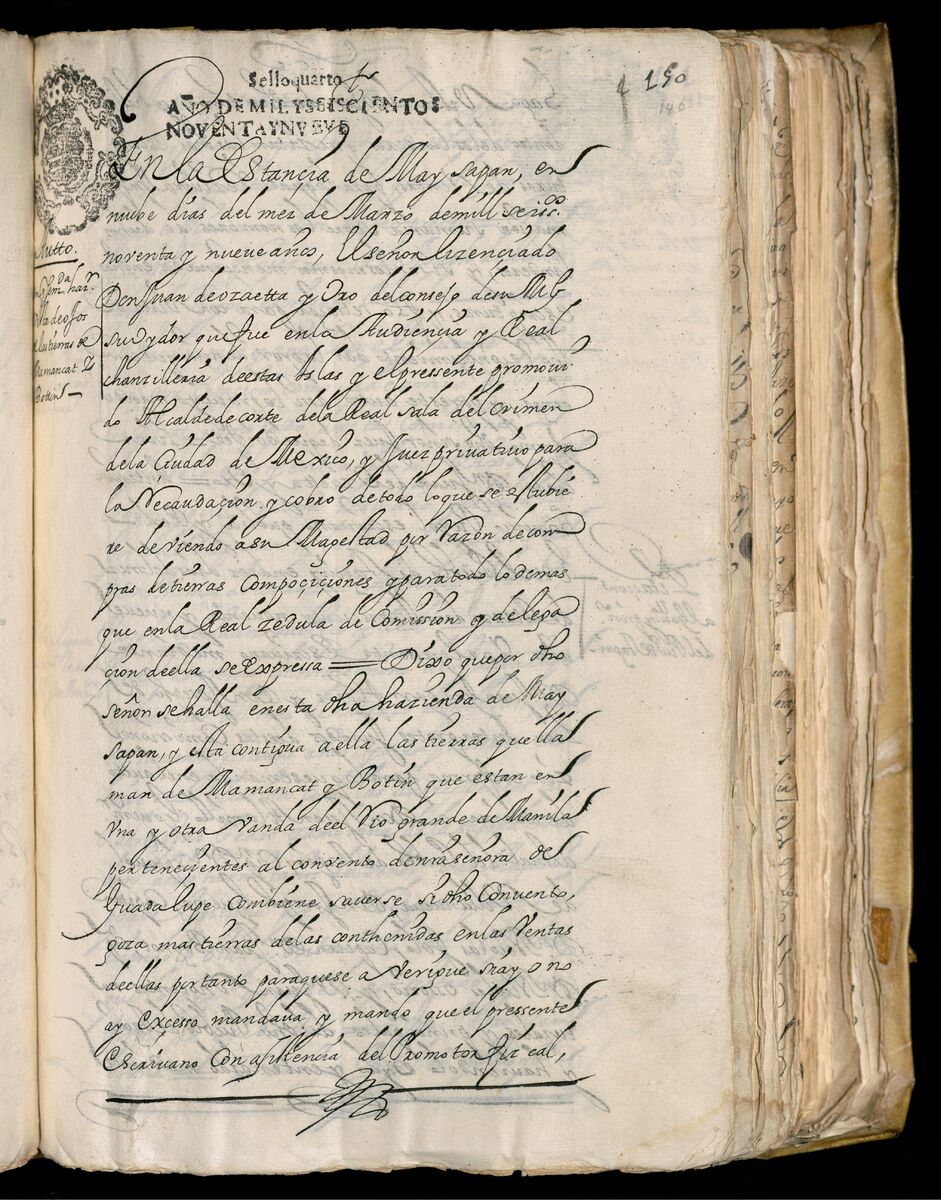 150
Sello quarto
AÑO DE MIL Y SEISCIENTOS
NOVENTA Y NVEVE
En la Estancia de May sapan, en
nuebe dias del mez de Marzo de mill seisºs.
noventa y nueve años, El señor lizenciado
Don Juan de ozaetta y Oro del consejo de su Mg
su oydor que fue en la Audiencia y Real
chanzilleria de estas Islas y el pressente promoui-
do Alcalde de corte de la Real sala del crimen
de la Ciudad de Mexico, y Juez priuatiuo para
la Recaudaçion y cobro de todo lo que se estubie
re deviendo a su Magestad por Razon de com
pras de tierras Compoçiçiones y para todo lo demas
que en la Real zedula de Comission y delega
çion de ella se Expressa = Dixo que por dho
señor se halla en esta dha hazienda de May
sapan, y esta contigua a ella las tierras que lla
man de Mamancat y Botin que estan en
Vna y otra Vanda de el Rio grande de Manila
perteneçientes al convento de nra señora de
Guadalupe Combiene saverse si dho Convento,
goza mas tierras de las conthenidas en las Ventas
de ellas por tanto para que se a Verigue si ay o no
ay Excesso mandava y mando que el pressente
Escrivano Con asistencia del Promotor fiscal,
Autto.
de ofos
las tierras de
Mamancat y
Botin